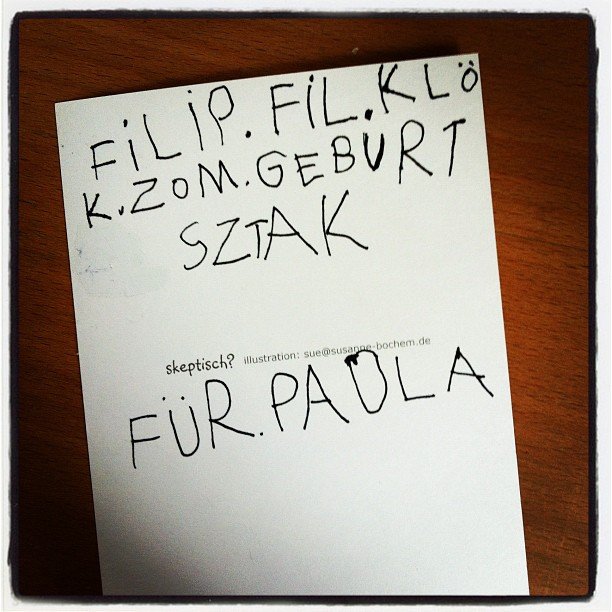 FiLiP. FiL. KLÖ
K. ZOM. GEBURT
SZTAK
skeptisch? illustration: sue@susanne-bochem.de
FÜR. PAULA